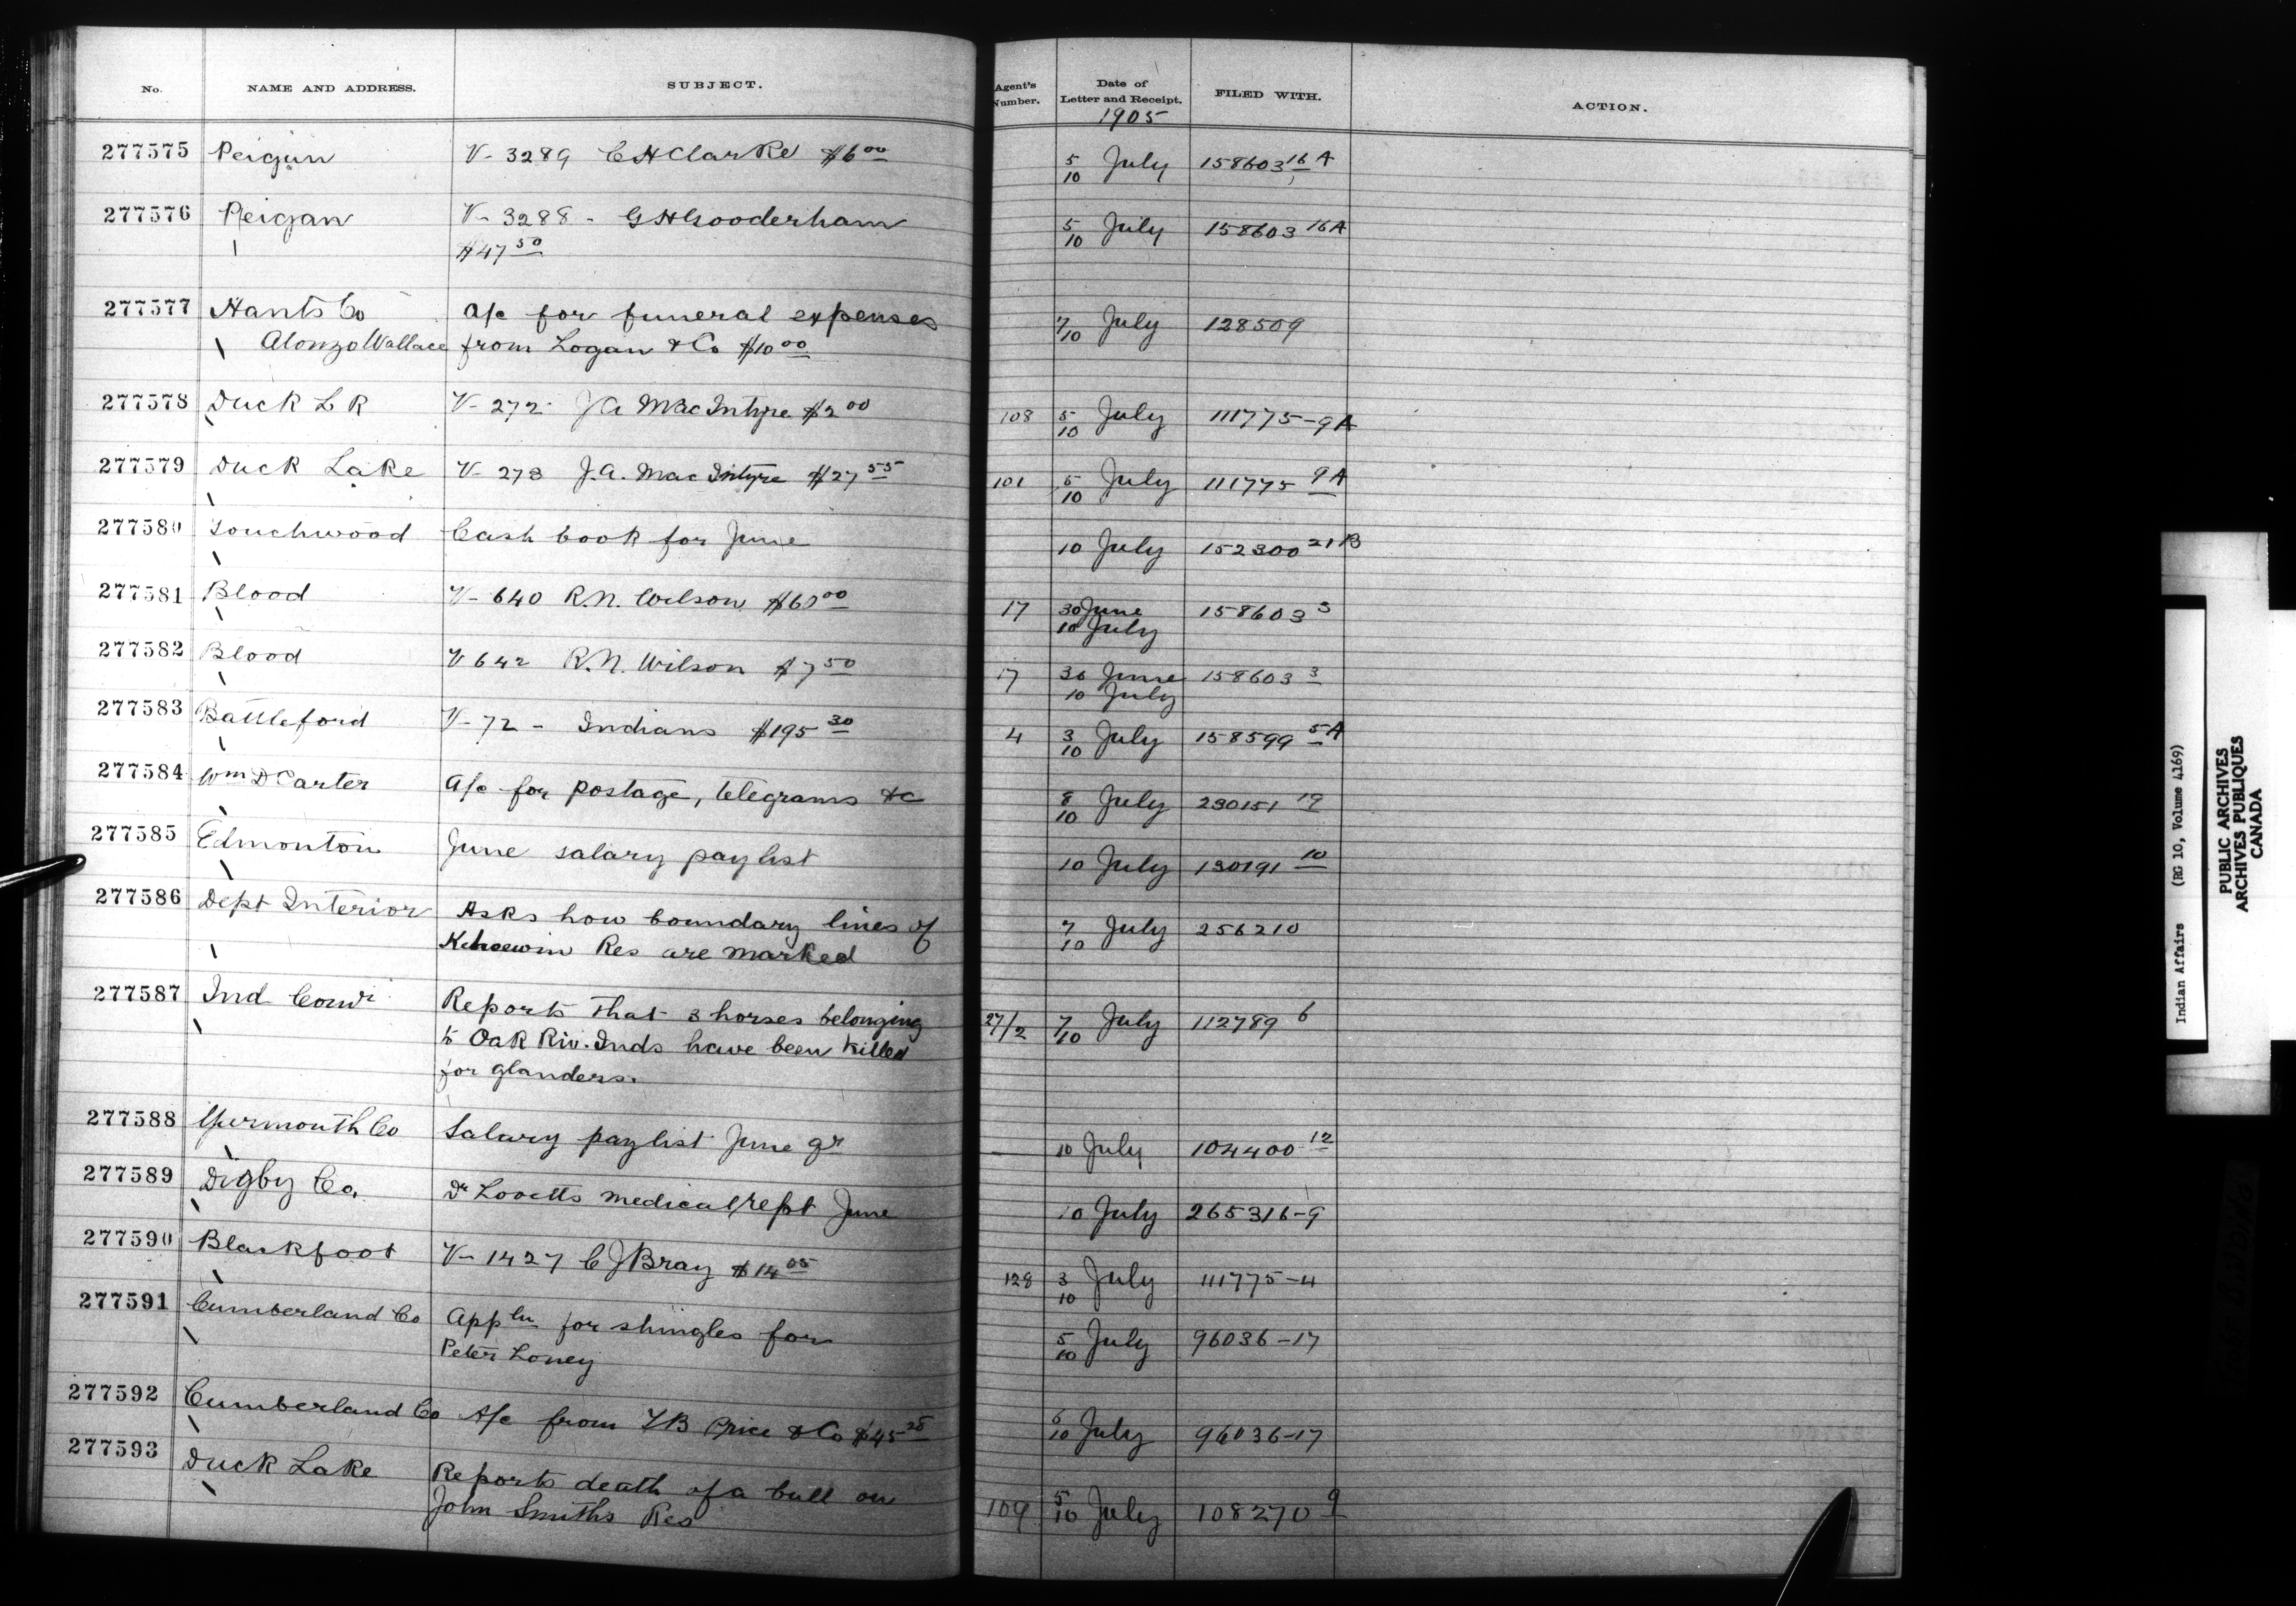 No. NAME AND ADDRESS. SUBJECT. Agent's Number. Date of Letter and Receipt. FILED WITH. ACTION.
1905
277575 Peigan V- 3289 C H Clarke $6 00 5/10 July 158603 16 A
277576 Peigan V- 3288 - G H Gooderham 5/10 July 158603 16A
$47 50
277577 Hants Co A/c for funeral expenses 7/10 July 128509
Alonzo Wallace from Logan & Co $10 00
277578 Duck L R V- 272 J A MacIntyre $2 00 108 5/10 July 111775-9A
277579 Duck Lake V- 273 J.A. MacIntyre $27 55 101 5/10 July 111775 9A
277580 Touchwood Cash book for June 10 July 152300 21B
277581 Blood V- 640 R.N. Wilson $60 00 17 30 June 158603 3
10 July
277582 Blood V 642 R.N. Wilson $7 50 17 30 June 158603 3
10 July
277583 Battleford V- 72 - Indians $195 30 4 3/10 July 158599 5A
277584 Wm D Carter A/c for postage, telegrams &c 8/10 July 230151 19
277585 Edmonton June salary paylist 10 July 130191 10
277586 Dept Interior Asks how boundary lines of 7/10 July 256210
Keheewin Res are marked
277587 Ind Comr Reports that 3 horses belonging 27/2 7/10 July 112789 6
to Oak Riv. Inds have been killed
for glanders.
277588 Yarmouth Co Salary paylist June qr 10 July 104400 12
277589 Digby Co. Dr Lovetts medical rept June 10 July 265316-9
277590 Blackfoot V- 1427 C J Bray $14 05 128 3/10 July 111775-4
277591 Cumberland Co Appln for shingles for 5/10 July 96036-17
Peter Loney
277592 Cumberland Co A/c from Price & Co $45 28 6/10 July 96036-17
277593 Duck Lake Reports death of a bull on 109 5/10 July 108270 9
John Smiths Res
Indian Affairs (RG 10, Volume 4169)
PUBLIC ARCHIVES
ARCHIVES PUBLIQUES
CANADA